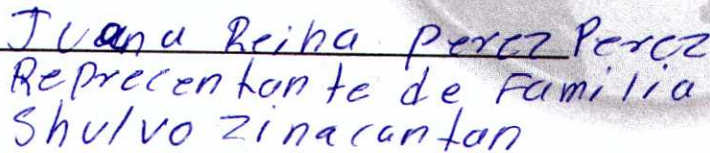 Juana Reina Perez Perez
Reprecentante de Familia
Shulvo Zinacantan